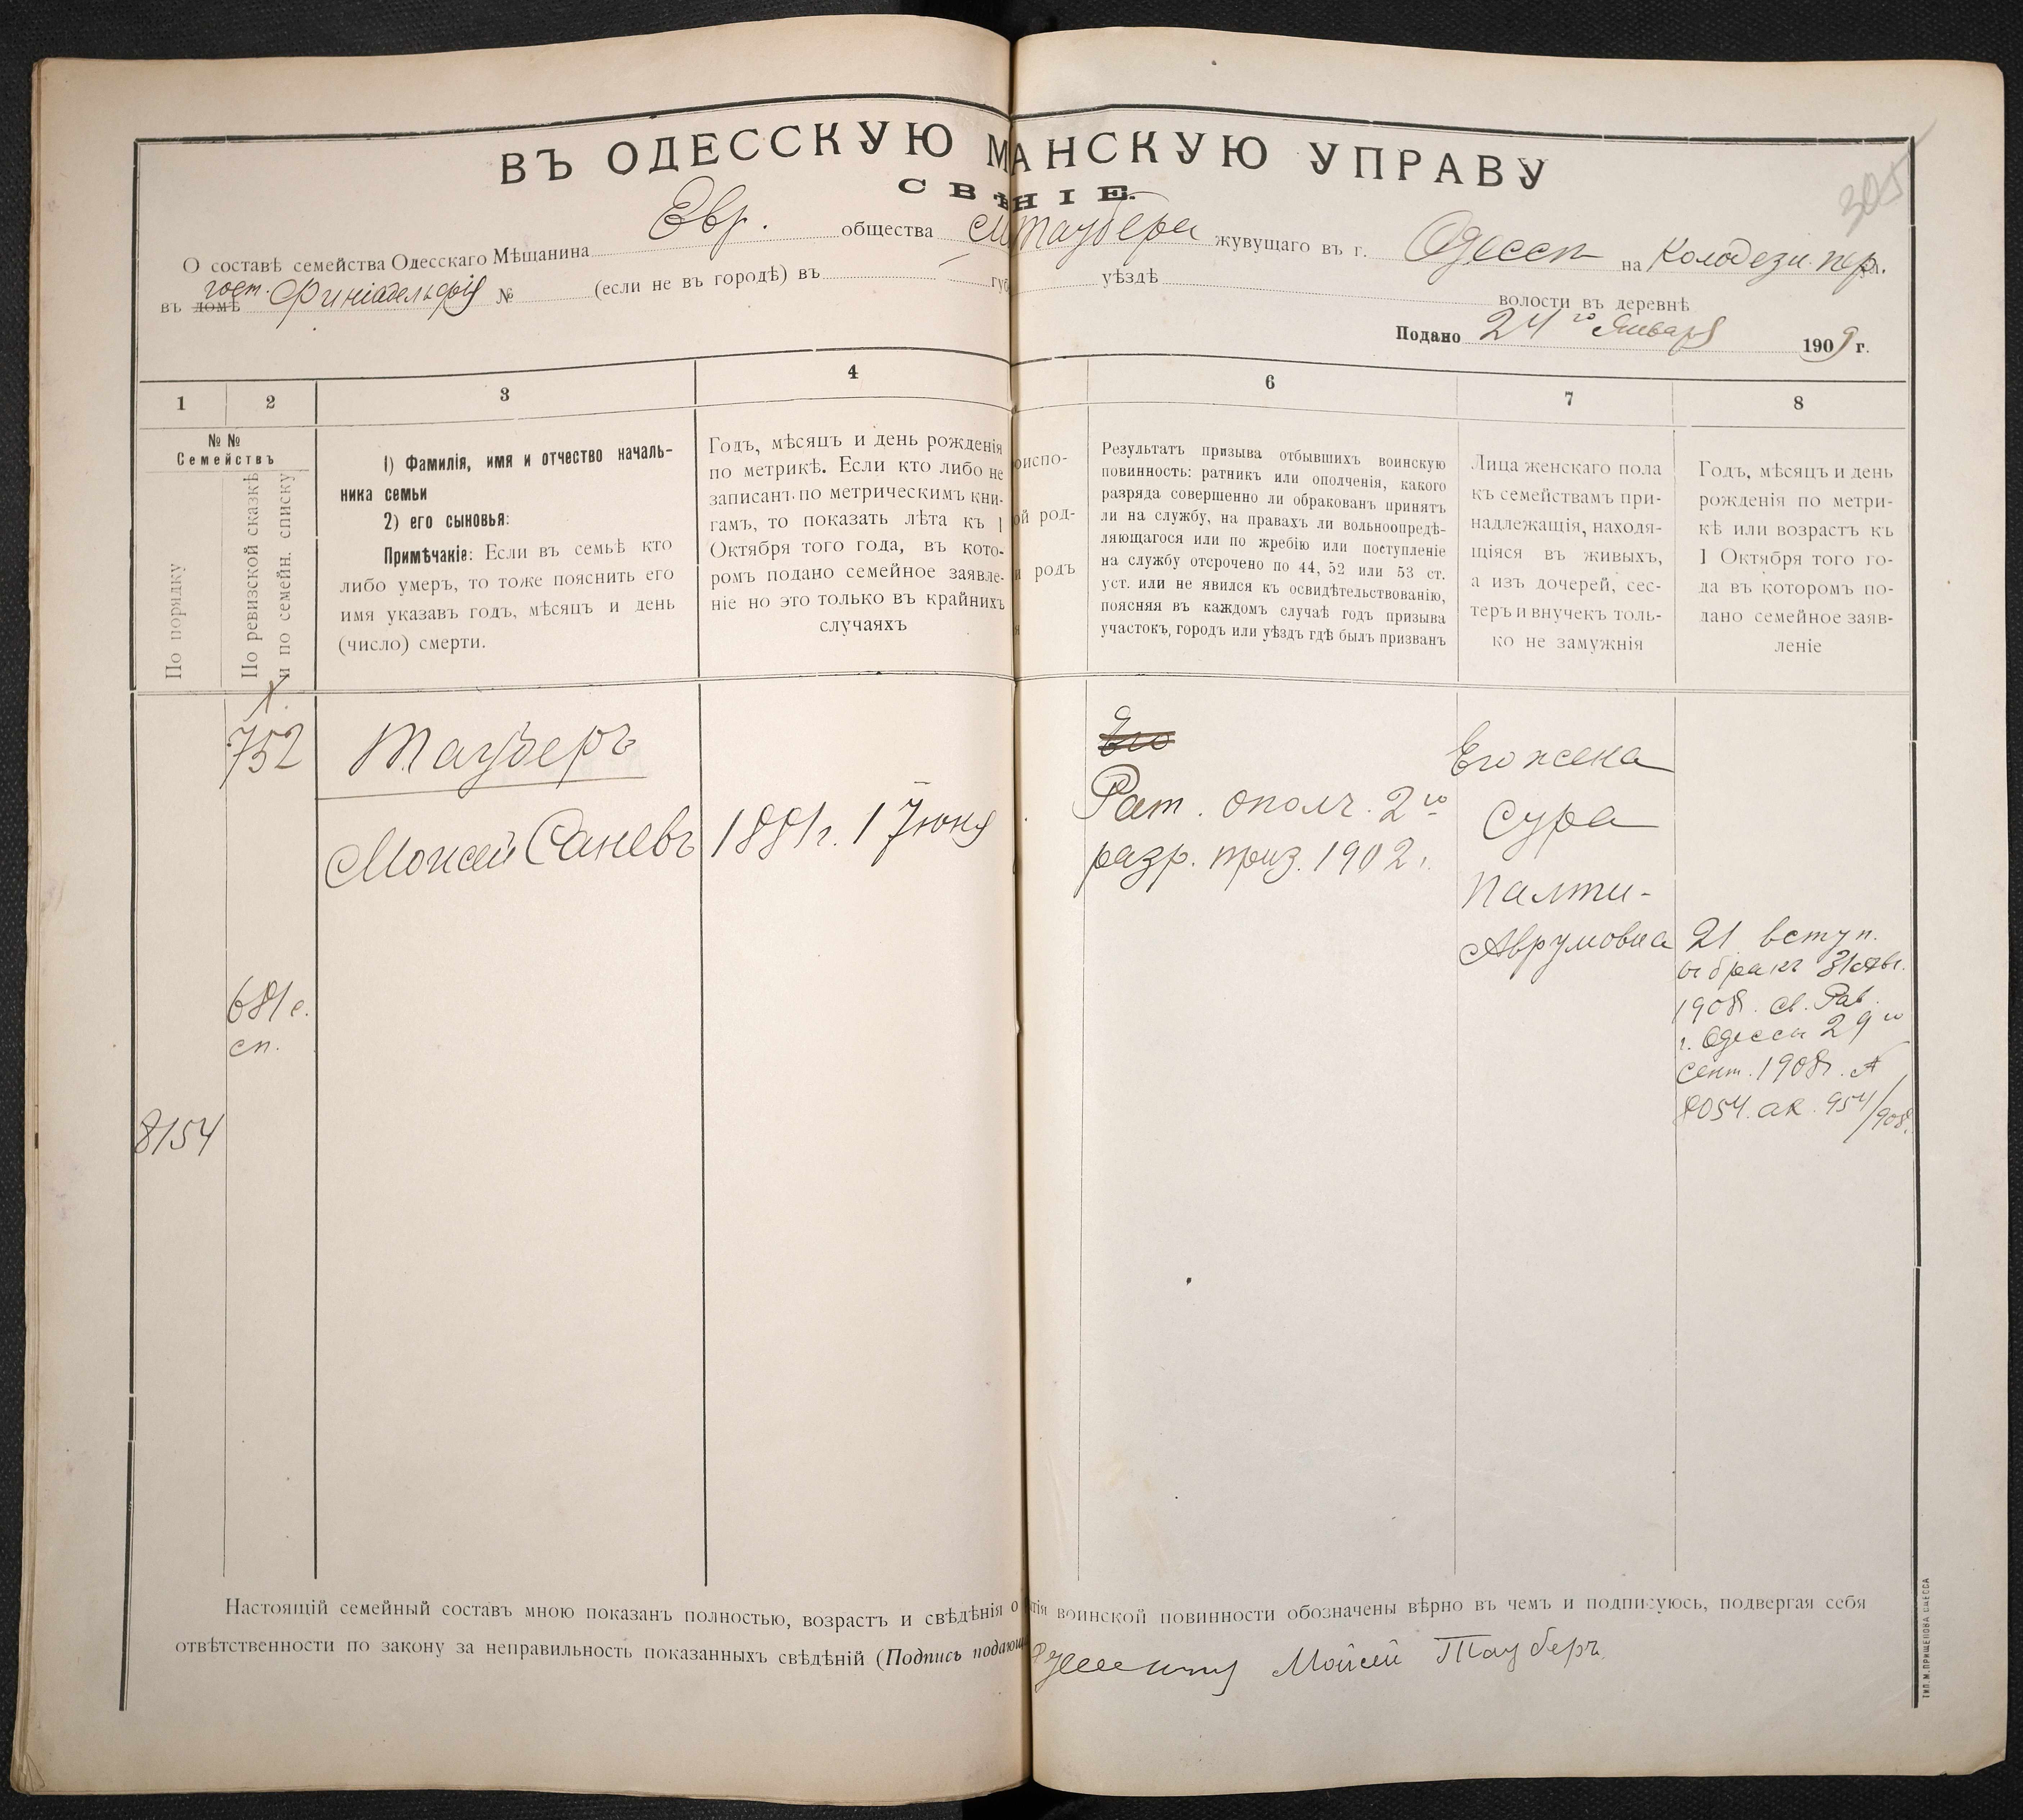 305
ВЪ ОДЕССКУЮ М АНСКУЮ УПРАВУ
СВѢ НІЕ.
О составѣ семейства Одесскаго Мѣщанина Евр. общества М Таубера жувущаго въ г. Одессѣ на Колодезн. пер.
въ домѣ гост. № (если не въ городѣ) въ — губ уѣздѣ волости въ деревнѣ
Подано 24 го Января 1909 г.
1
2
3
4
6
7
8
№ №
Семействъ
По порядку
По ревизской сказкѣ
и по семейн. списку
1) Фамилія, имя и отчество началь-
ника семьи
2) его сыновья:
Примѣчакіе: Если въ семьѣ кто
либо умеръ, то тоже пояснить его
имя указавъ годъ, мѣсяцъ и день
(число) смерти.
Годъ, мѣсяцъ и день рожденія
по метрикѣ. Если кто либо не
записанъ по метрическимъ кни-
гамъ, то показать лѣта къ 1
Октября того года, въ кото-
ромъ подано семейное заявле-
ніе но это только въ крайнихъ
случаяхъ
оиспо-
ой род-
и родъ
Результатъ призыва отбывшихъ воинскую
повинность: ратникъ или ополченія, какого
разряда совершенно ли обракованъ принятъ
ли на службу, на правахъ ли вольноопредѣ-
ляющагося или по жребію или поступленіе
на службу отсрочено по 44, 52 или 53 ст.
уст. или не явился къ освидѣтельствованію,
поясняя въ каждомъ случаѣ годъ призыва
участокъ, городъ или уѣздъ гдѣ былъ призванъ
Лица женскаго пола
къ семействамъ при-
надлежащія, находя-
щіяся въ живыхъ,
а изъ дочерей, сес-
теръ и внучекъ толь-
ко не замужнія
Годъ, мѣсяцъ и день
рожденія по метри-
кѣ или возрастъ къ
1 Октября того го-
да въ которомъ по-
дано семейное заяв-
леніе
752
681 с.
сп.
8154
Тауберъ
Моисей Саневъ
1881 г. 1 Іюня
Его
Рат. ополч. 2 го
разр. приз. 1902 г.
Его жена
Сура
Палти-
Аврумовна
21 вступ.
въ бракъ 31 Авг.
1908 г. св. Рав.
г. Одессы 29 го
Сент. 1908 г. №
8054. ак. 954/908.
Настоящій семейный составъ мною показанъ полностью, возрастъ и свѣдѣнія о тія воинской повинности обозначены вѣрно въ чемъ и подписуюсь, подвергая себя
отвѣтственности по закону за неправильность показанныхъ свѣдѣній (Подпись подающ Мойсей Тауберъ
ТИП. М. ПРИЩЕПОВА ОДЕССА